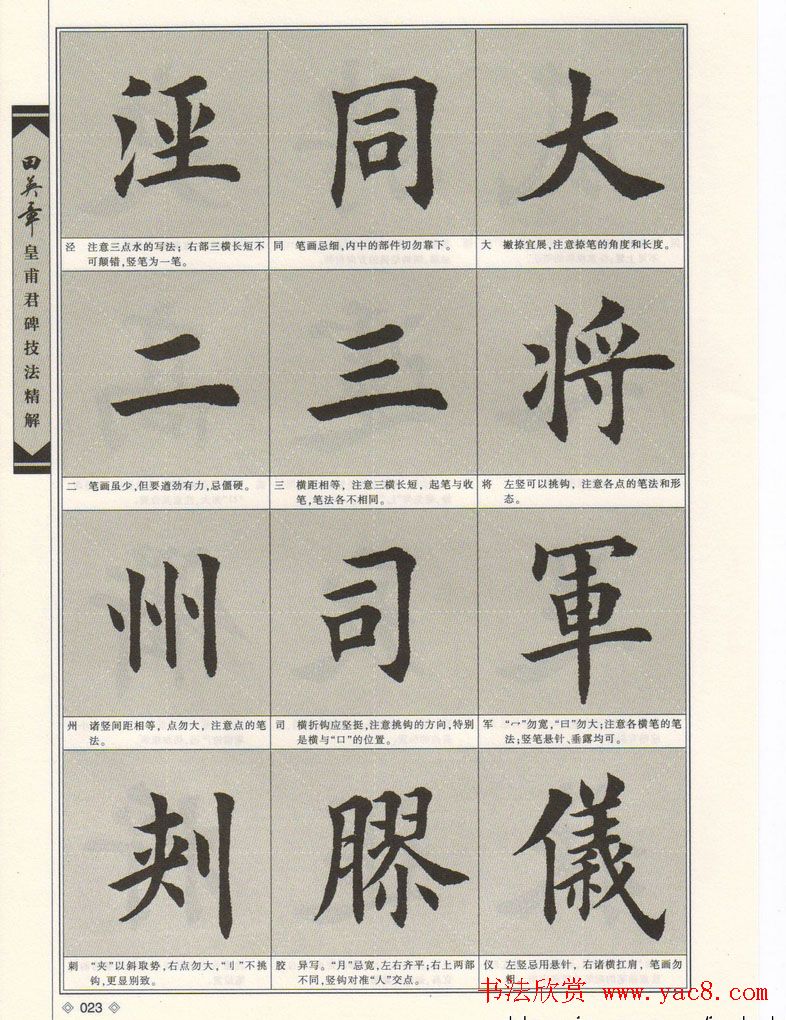 田英章
皇甫君碑技法精解
泾
同
大
泾 注意三点水的写法；右部三横长短不
可颠错，竖笔为一笔。
同 笔画忌细，内中的部件切勿靠下。
大 撇捺宜展，注意捺笔的角度和长度。
二
三
将
二 笔画虽少，但要遒劲有力，忌僵硬。
三 横距相等，注意三横长短，起笔与收
笔，笔法各不相同。
将 左竖可以挑钩，注意各点的笔法和形
态。
州
司
軍
州 诸竖间距相等，点勿大，注意点的笔
法。
司 横折钩应坚挺，注意挑钩的方向，特别
是横与“口”的位置。
军 “冖”勿宽，“曰”勿大；注意各横笔的笔
法；竖笔悬针、垂露均可。
刺
膠
儀
刺 “夹”以斜取势，右点勿大，“刂”不挑
钩，更显别致。
胶 异写。“月”忌宽，左右齐平；右上两部
不同，竖钩对准“人”交点。
仪 左竖忌用悬针，右诸横扛肩，笔画勿
粗。
023
书法欣赏 www.yac8.com